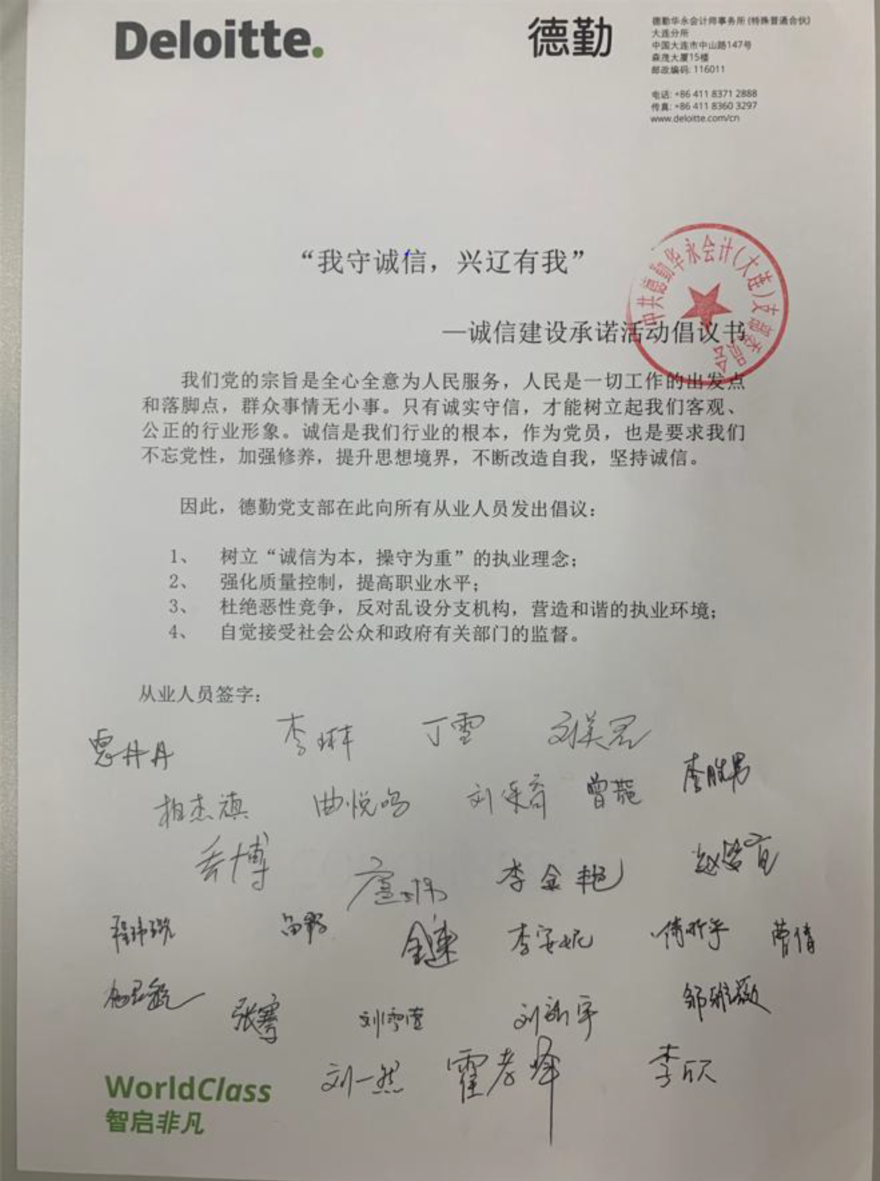 Deloitte.
德勤
德勤华永会计师事务所(特殊普通合伙)
大连分所
中国大连市中山路147号
森茂大厦15楼
邮政编码: 116011
电话: +86 411 8371 2888
传真: +86 411 8360 3297
www.deloitte.com/cn
“我守诚信，兴辽有我”
中共德勤华永会计(大连)支部委员会
—诚信建设承诺活动倡议书
我们党的宗旨是全心全意为人民服务，人民是一切工作的出发点
和落脚点，群众事情无小事。只有诚实守信，才能树立起我们客观、
公正的行业形象。诚信是我们行业的根本，作为党员，也是要求我们
不忘党性，加强修养，提升思想境界，不断改造自我，坚持诚信。
因此，德勤党支部在此向所有从业人员发出倡议：
1、 树立“诚信为本，操守为重”的执业理念；
2、 强化质量控制，提高职业水平；
3、 杜绝恶性竞争，反对乱设分支机构，营造和谐的执业环境；
4、 自觉接受社会公众和政府有关部门的监督。
从业人员签字：
李琳 丁雪 刘美君
相杰旗 曲悦鸣 李胜男
李金艳
李安妮 曹倩
张骞
刘一然 霍孝峰 李欣
WorldClass
智启非凡